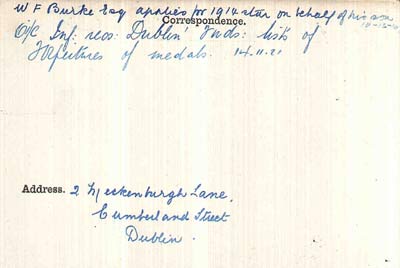 W F Burke Esq applies for 1914 star on behalf of his son
Correspondence.
O/C Inf: recs: Dublin fwds: lists of
Forfeitures of medals. 14.11.21
Address. 2 Meckenburgh Lane,
Cumberland Street
Dublin.